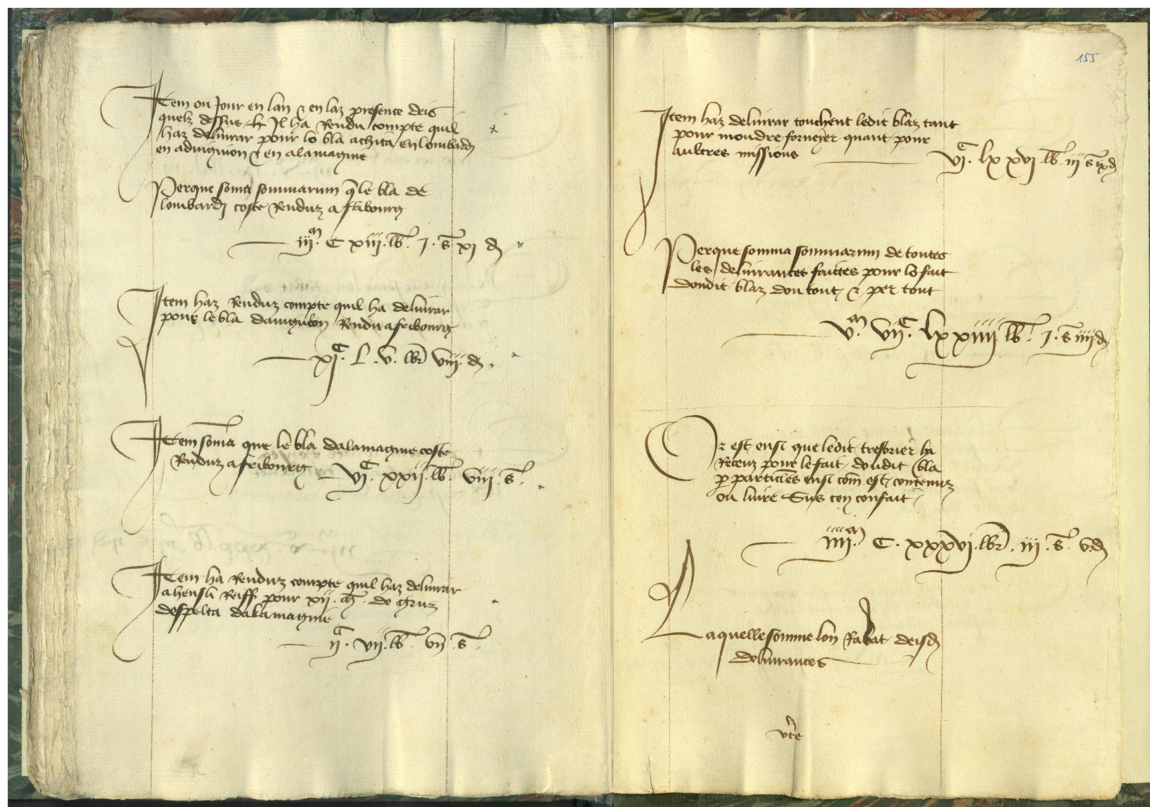 Item ou Jour en lan & en laz presence deis
quelz dessus &c. Il ha Rendu compte quil
haz deliurar pour lo bla achita en lombardi
en auignyon & en alamagnie
Perque soma sommarum q le bla de
lombardi coste Renduz a fribourg
iii m. C xiii. lb. I. s xi d
Item haz Renduz compte quil ha deliurar
pour le bla dauignion Rendu a fribourg
xi C. L. v. lb viii. d.
Item soma que le bla dalamagnie coste
Renduz a fribourg vi C. xxii. lb. viii. s.
Item ha Renduz compte quil haz deliurar
a hensli Reiff pour xii. de gruz
despelta dalamagnie
ii C. vii. lb. vii s.
155
Item haz deliurar touchent ledit blaz tant
pour moudre forneyer quant pour
aultres missions vi C. lxxvi lb. iii s ix d
Perque somma sommarum de toutes
les deliurances faittes pour lo fait
doudit blaz dou tout & per tout
v m. vii C. lxxiiii lb. I. s iiii d
Or est ensi que ledit tresorier ha
Receuz pour le fait doudit bla
p particules ensi com est contenuz
ou liure Sus cen confait
iiii m. C. xxxvi. lb. iii. s. v. d
Laquelle somme lon Rabat deisd
deliurances
vte